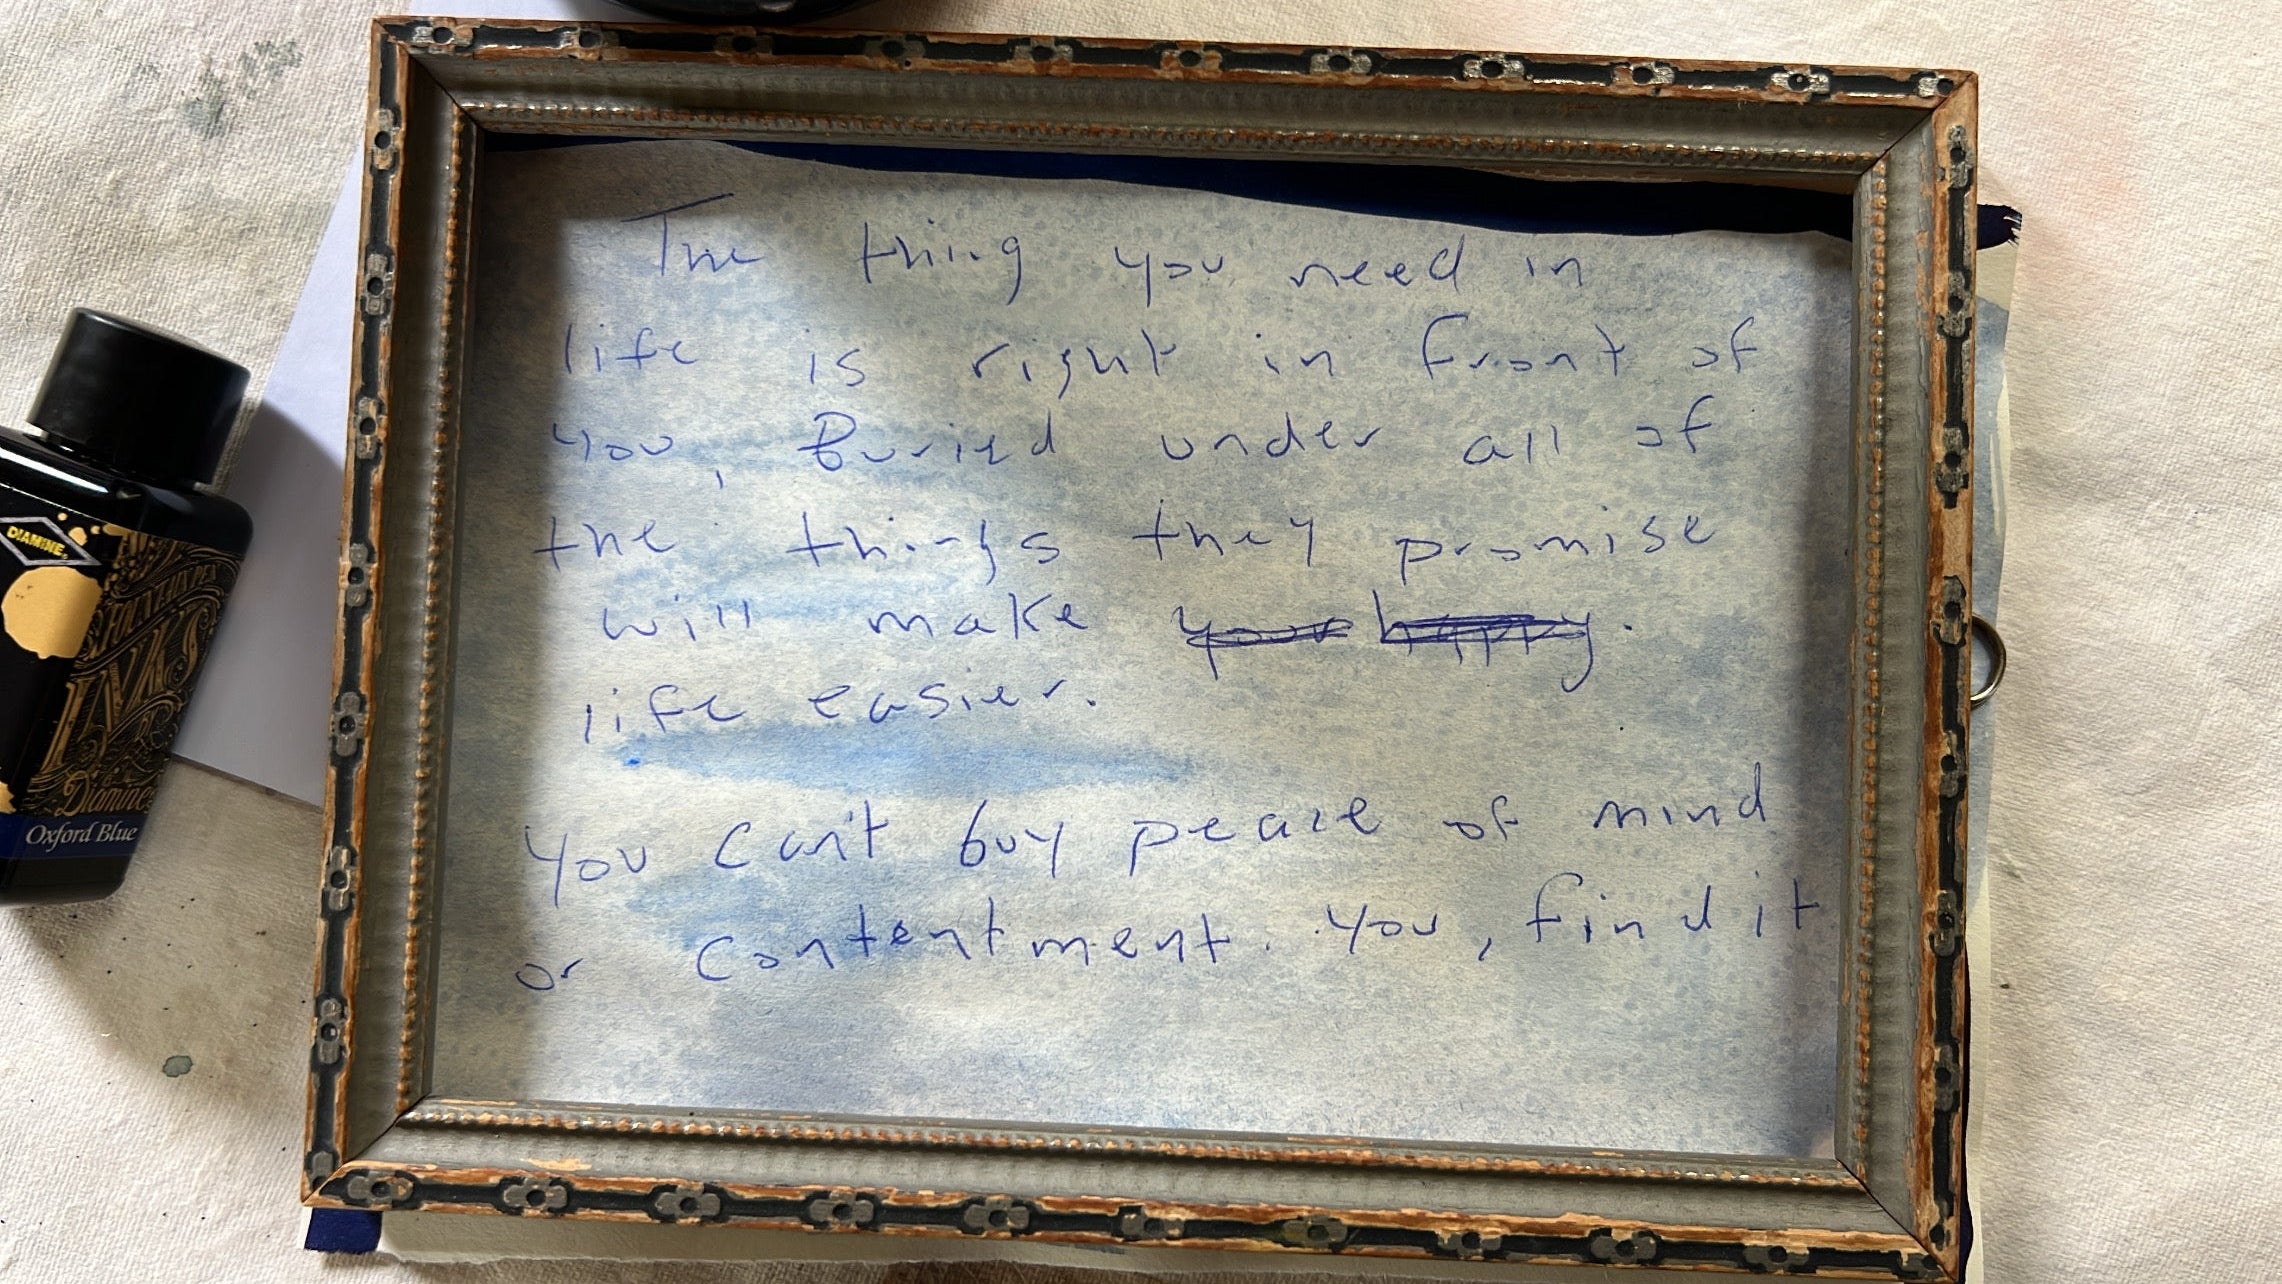 The thing you need in
life is right in front of
you, Buried under all of
the things they promise
will make your happy.
life easier.
you can't buy peace of mind
or contentment. you, find it
DIAMINE
FOUNTAIN PEN
INKS
Diamine
Oxford Blue